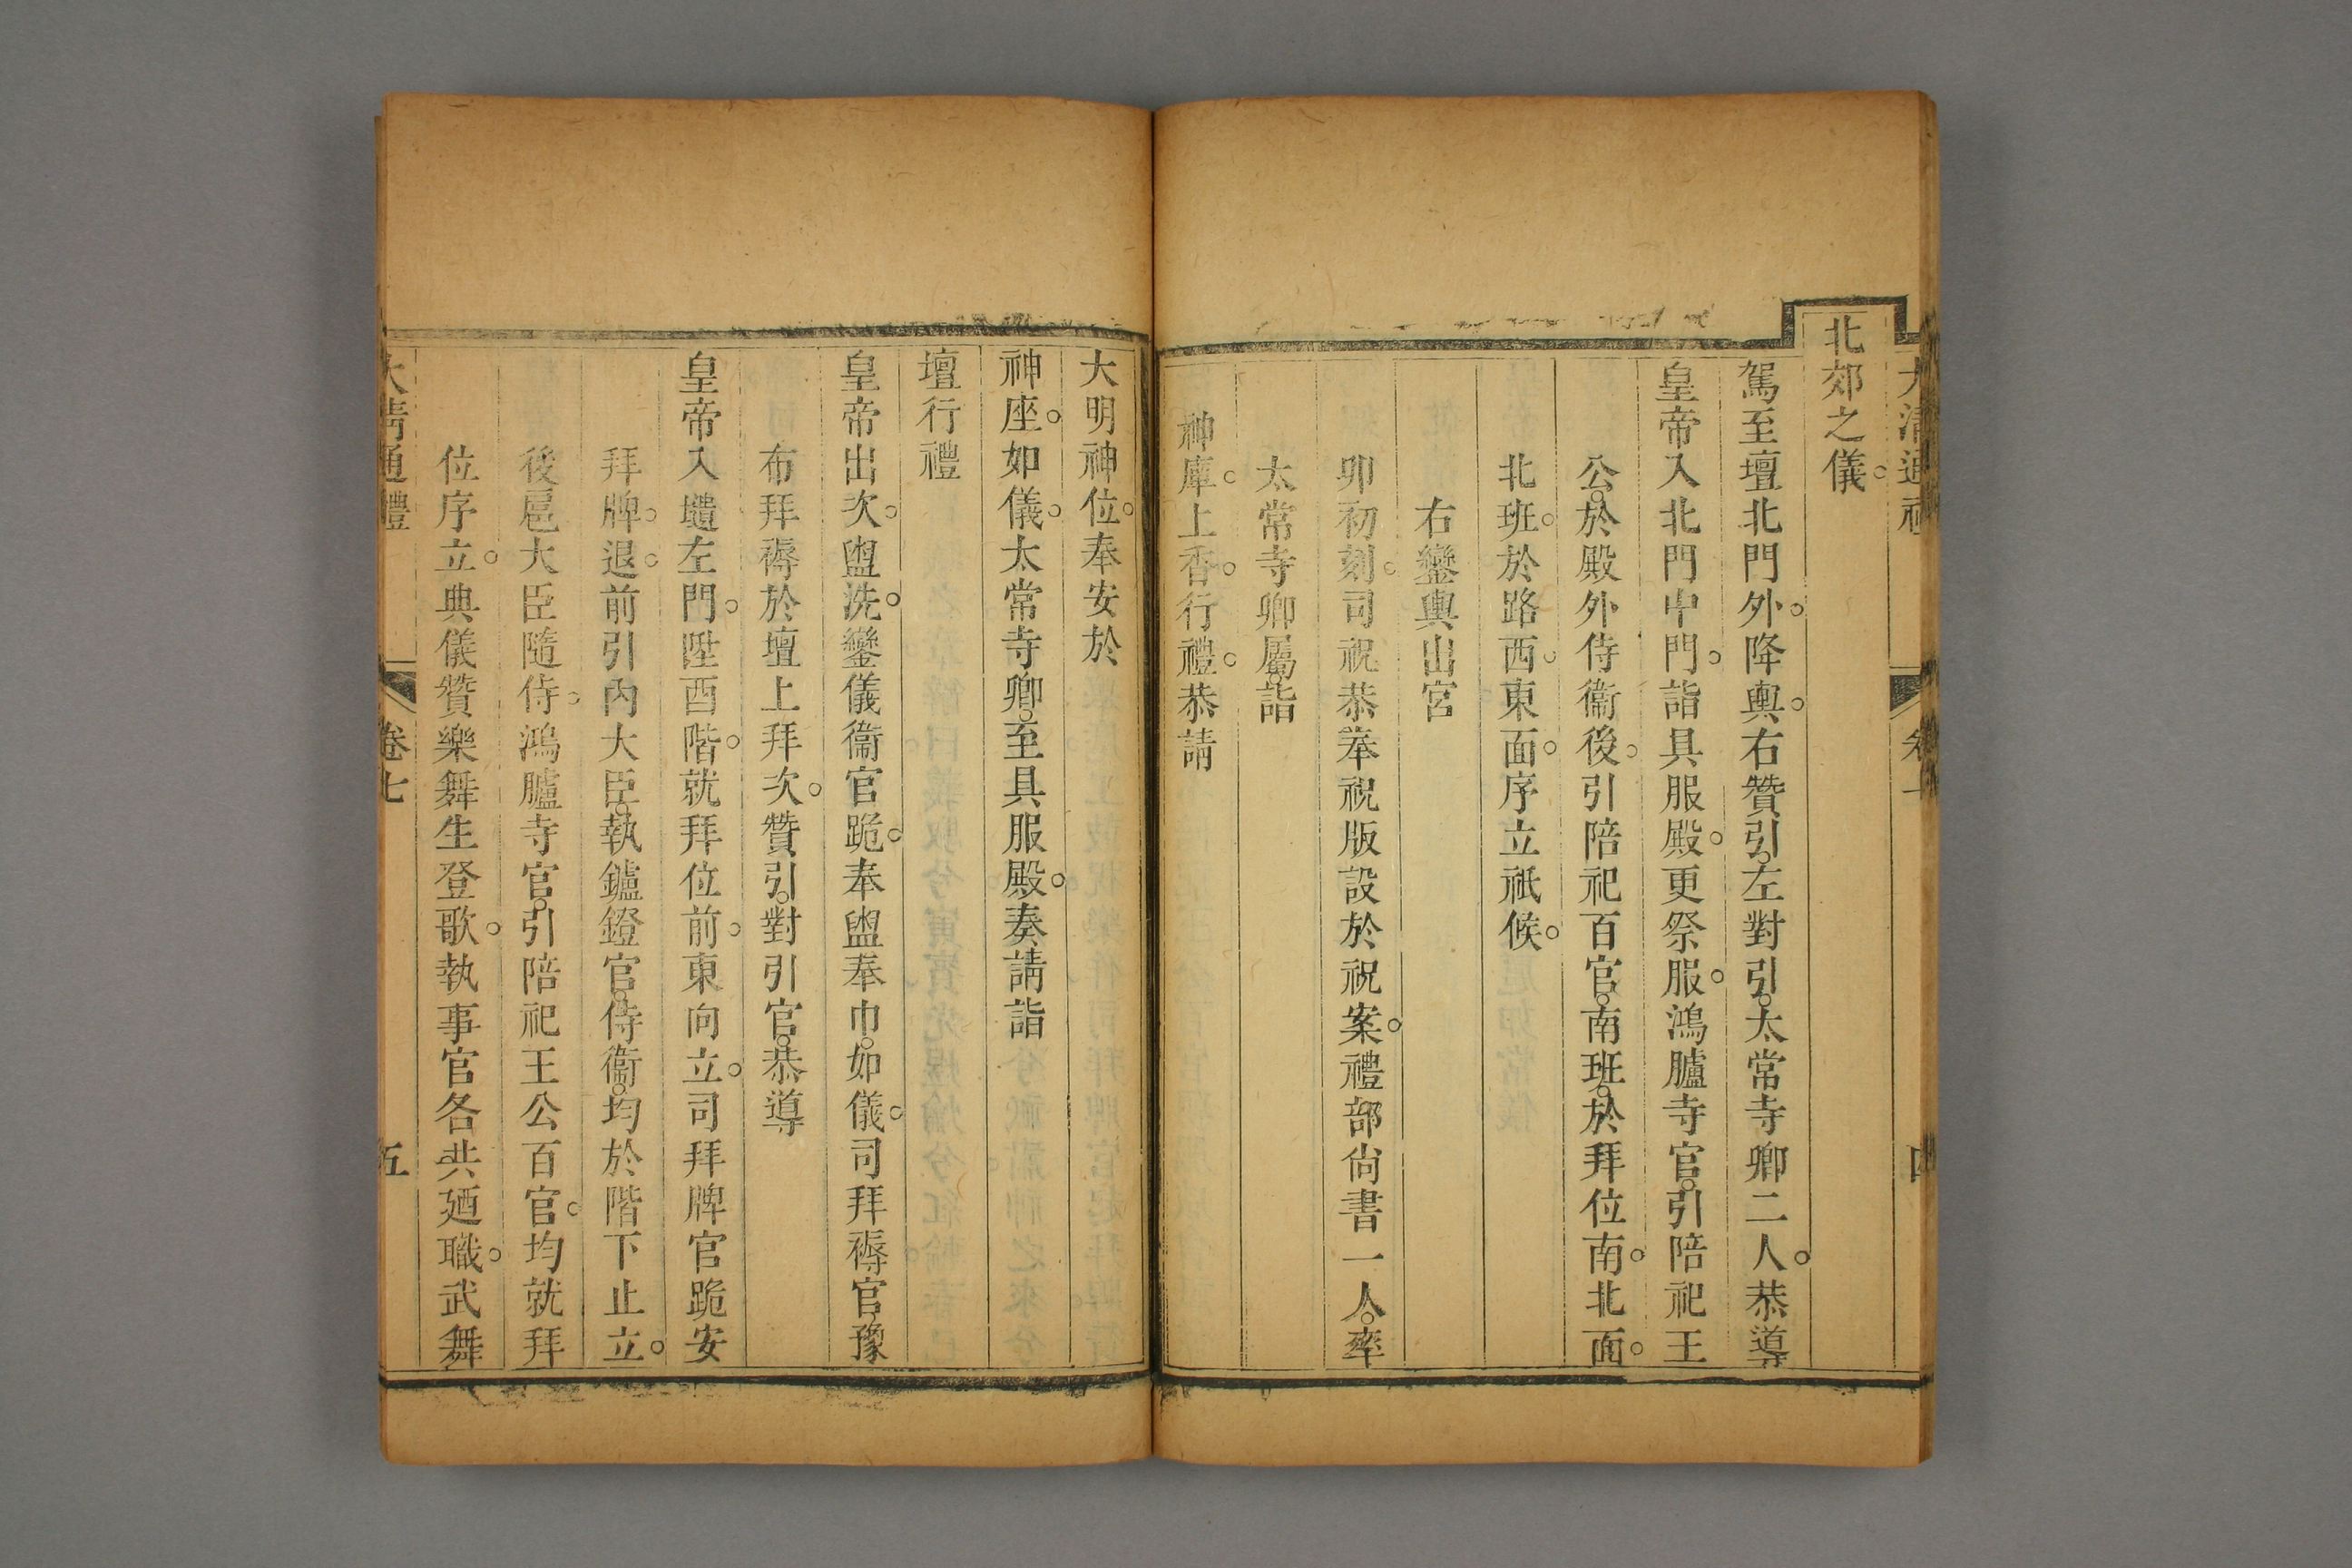 大清通禮 卷 四
北郊之儀。
駕至壇北門外。降輿。右贊引。左對引。太常寺卿二人。恭導
皇帝入北門中門。詣具服殿。更祭服。鴻臚寺官。引陪祀王
公。於殿外侍衞後。引陪祀百官。南班。於拜位南。北面。
北班。於路西。東面。序立祇候。
右鑾輿出宮
卯初刻。司祝恭奉祝版設於祝案。禮部尙書一人。率
太常寺卿屬。詣
神庫。上香。行禮。恭請
大明神位。奉安於
神座。如儀。太常寺卿。至具服殿。奏請詣
壇行禮
皇帝出次。盥洗。鑾儀衞官跪。奉盥奉巾。如儀。司拜褥官。豫
布拜褥於壇上拜次。贊引。對引官。恭導
皇帝入壝左門。陞酉階。就拜位前。東向立。司拜牌官跪安
拜牌。退。前引內大臣。執鑪鐙官。侍衞。均於階下止立。
後扈大臣隨侍。鴻臚寺官。引陪祀王公百官。均就拜
位序立。典儀贊樂舞生登歌。執事官各共廼職。武舞
大清通禮 卷七 五